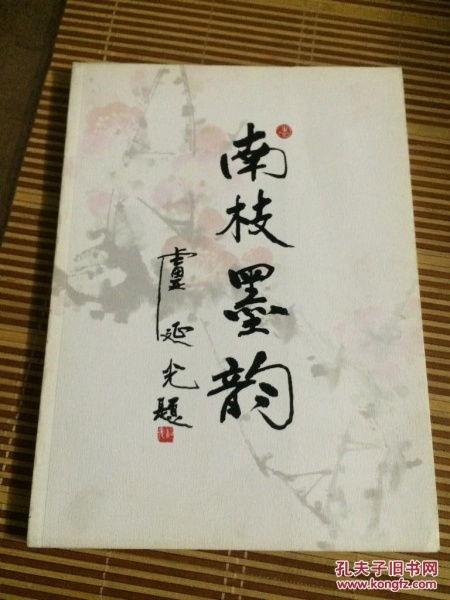 南枝墨韵
盧延光題
孔夫子旧书网
www.kongfz.com